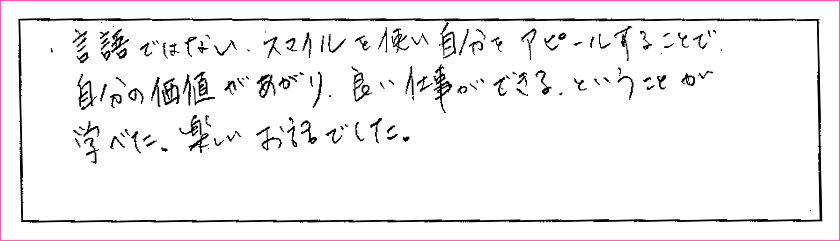 ・言語ではない、スマイルを使い自分をアピールすることで、
自分の価値があがり、良い仕事ができる、ということが
学べた。楽しいお話でした。